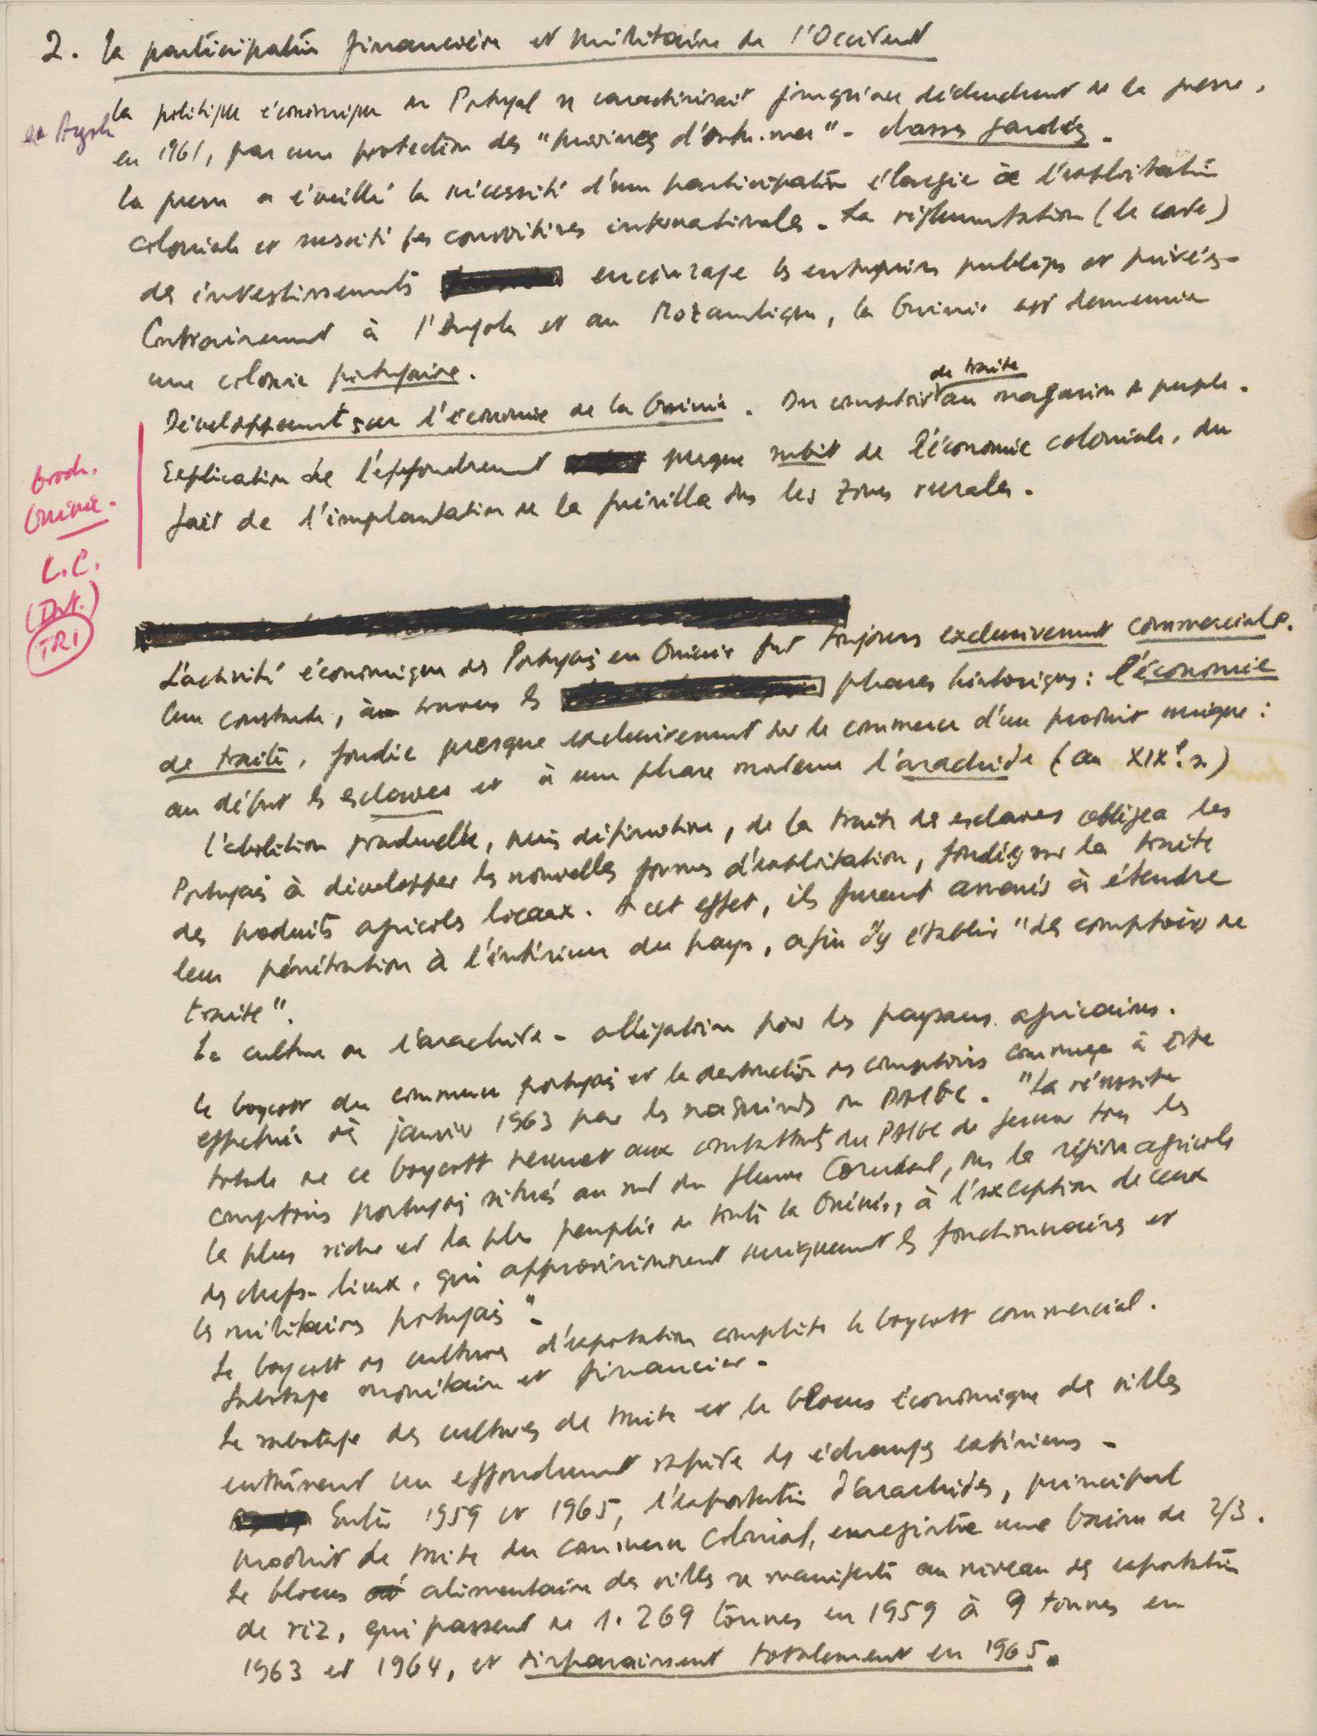 2. La participation financière et militaire de l'Occident
La politique économique du Portugal se caractérisait jusqu'au déclenchement de la guerre,
en Angola
en 1961, par une protection des "provinces d'outre-mer" - chasses gardées.
La guerre a éveillé la nécessité d'une participation élargie à l'exploitation
coloniale et suscité les convoitises internationales. La réglementation (le code)
des investissements encourage les entreprises publiques et privées.
Contrairement à l'Angola et au Mozambique, la Guinée est demeurée
une colonie portugaise.
de traite
Développement sur l'économie de la Guinée. Du comptoir au magasin du peuple.
Explication de l'effondrement presque subit de l'économie coloniale, du
fait de l'implantation de la guérilla dans les zones rurales.
Broch.
Guinée.
L.C.
(Dét.)
TRI
L'activité économique des Portugais en Guinée fut toujours exclusivement commerciale.
Une constante, à travers les phases historiques : l'économie
de traite, fondée presque exclusivement sur le commerce d'un produit unique :
au début les esclaves et à une phase moderne l'arachide (au XIXe s.)
L'abolition graduelle, puis définitive, de la traite des esclaves obligea les
Portugais à développer les nouvelles formes d'exploitation, fondées sur la traite
des produits agricoles locaux. A cet effet, ils furent amenés à étendre
leur pénétration à l'intérieur du pays, afin d'y établir "des comptoirs de
traite".
La culture de l'arachide - obligatoire pour les paysans africains.
Le boycott du commerce portugais et la destruction des comptoirs commence à être
effectué dès janvier 1963 par les maquisards du PAIGC. "La réussite
totale de ce boycott permet aux combattants du PAIGC de fermer tous les
comptoirs portugais situés au sud du fleuve Corubal, dans la région agricole
la plus riche et la plus peuplée de toute la Guinée, à l'exception de ceux
des chefs-lieux, qui approvisionnent uniquement les fonctionnaires et
les militaires portugais".
Le boycott des cultures d'exportation complète le boycott commercial.
Sabotage monétaire et financier.
Le sabotage des cultures de traite et le blocus économique des villes
entraînent un effondrement rapide des échanges extérieurs.
Entre 1959 et 1965, l'exportation d'arachides, principal
produit de traite du commerce colonial, enregistre une baisse de 2/3.
Le blocus alimentaire des villes se manifeste au niveau des exportations
de riz, qui passent de 1.269 tonnes en 1959 à 9 tonnes en
1963 et 1964, et disparaissent totalement en 1965.